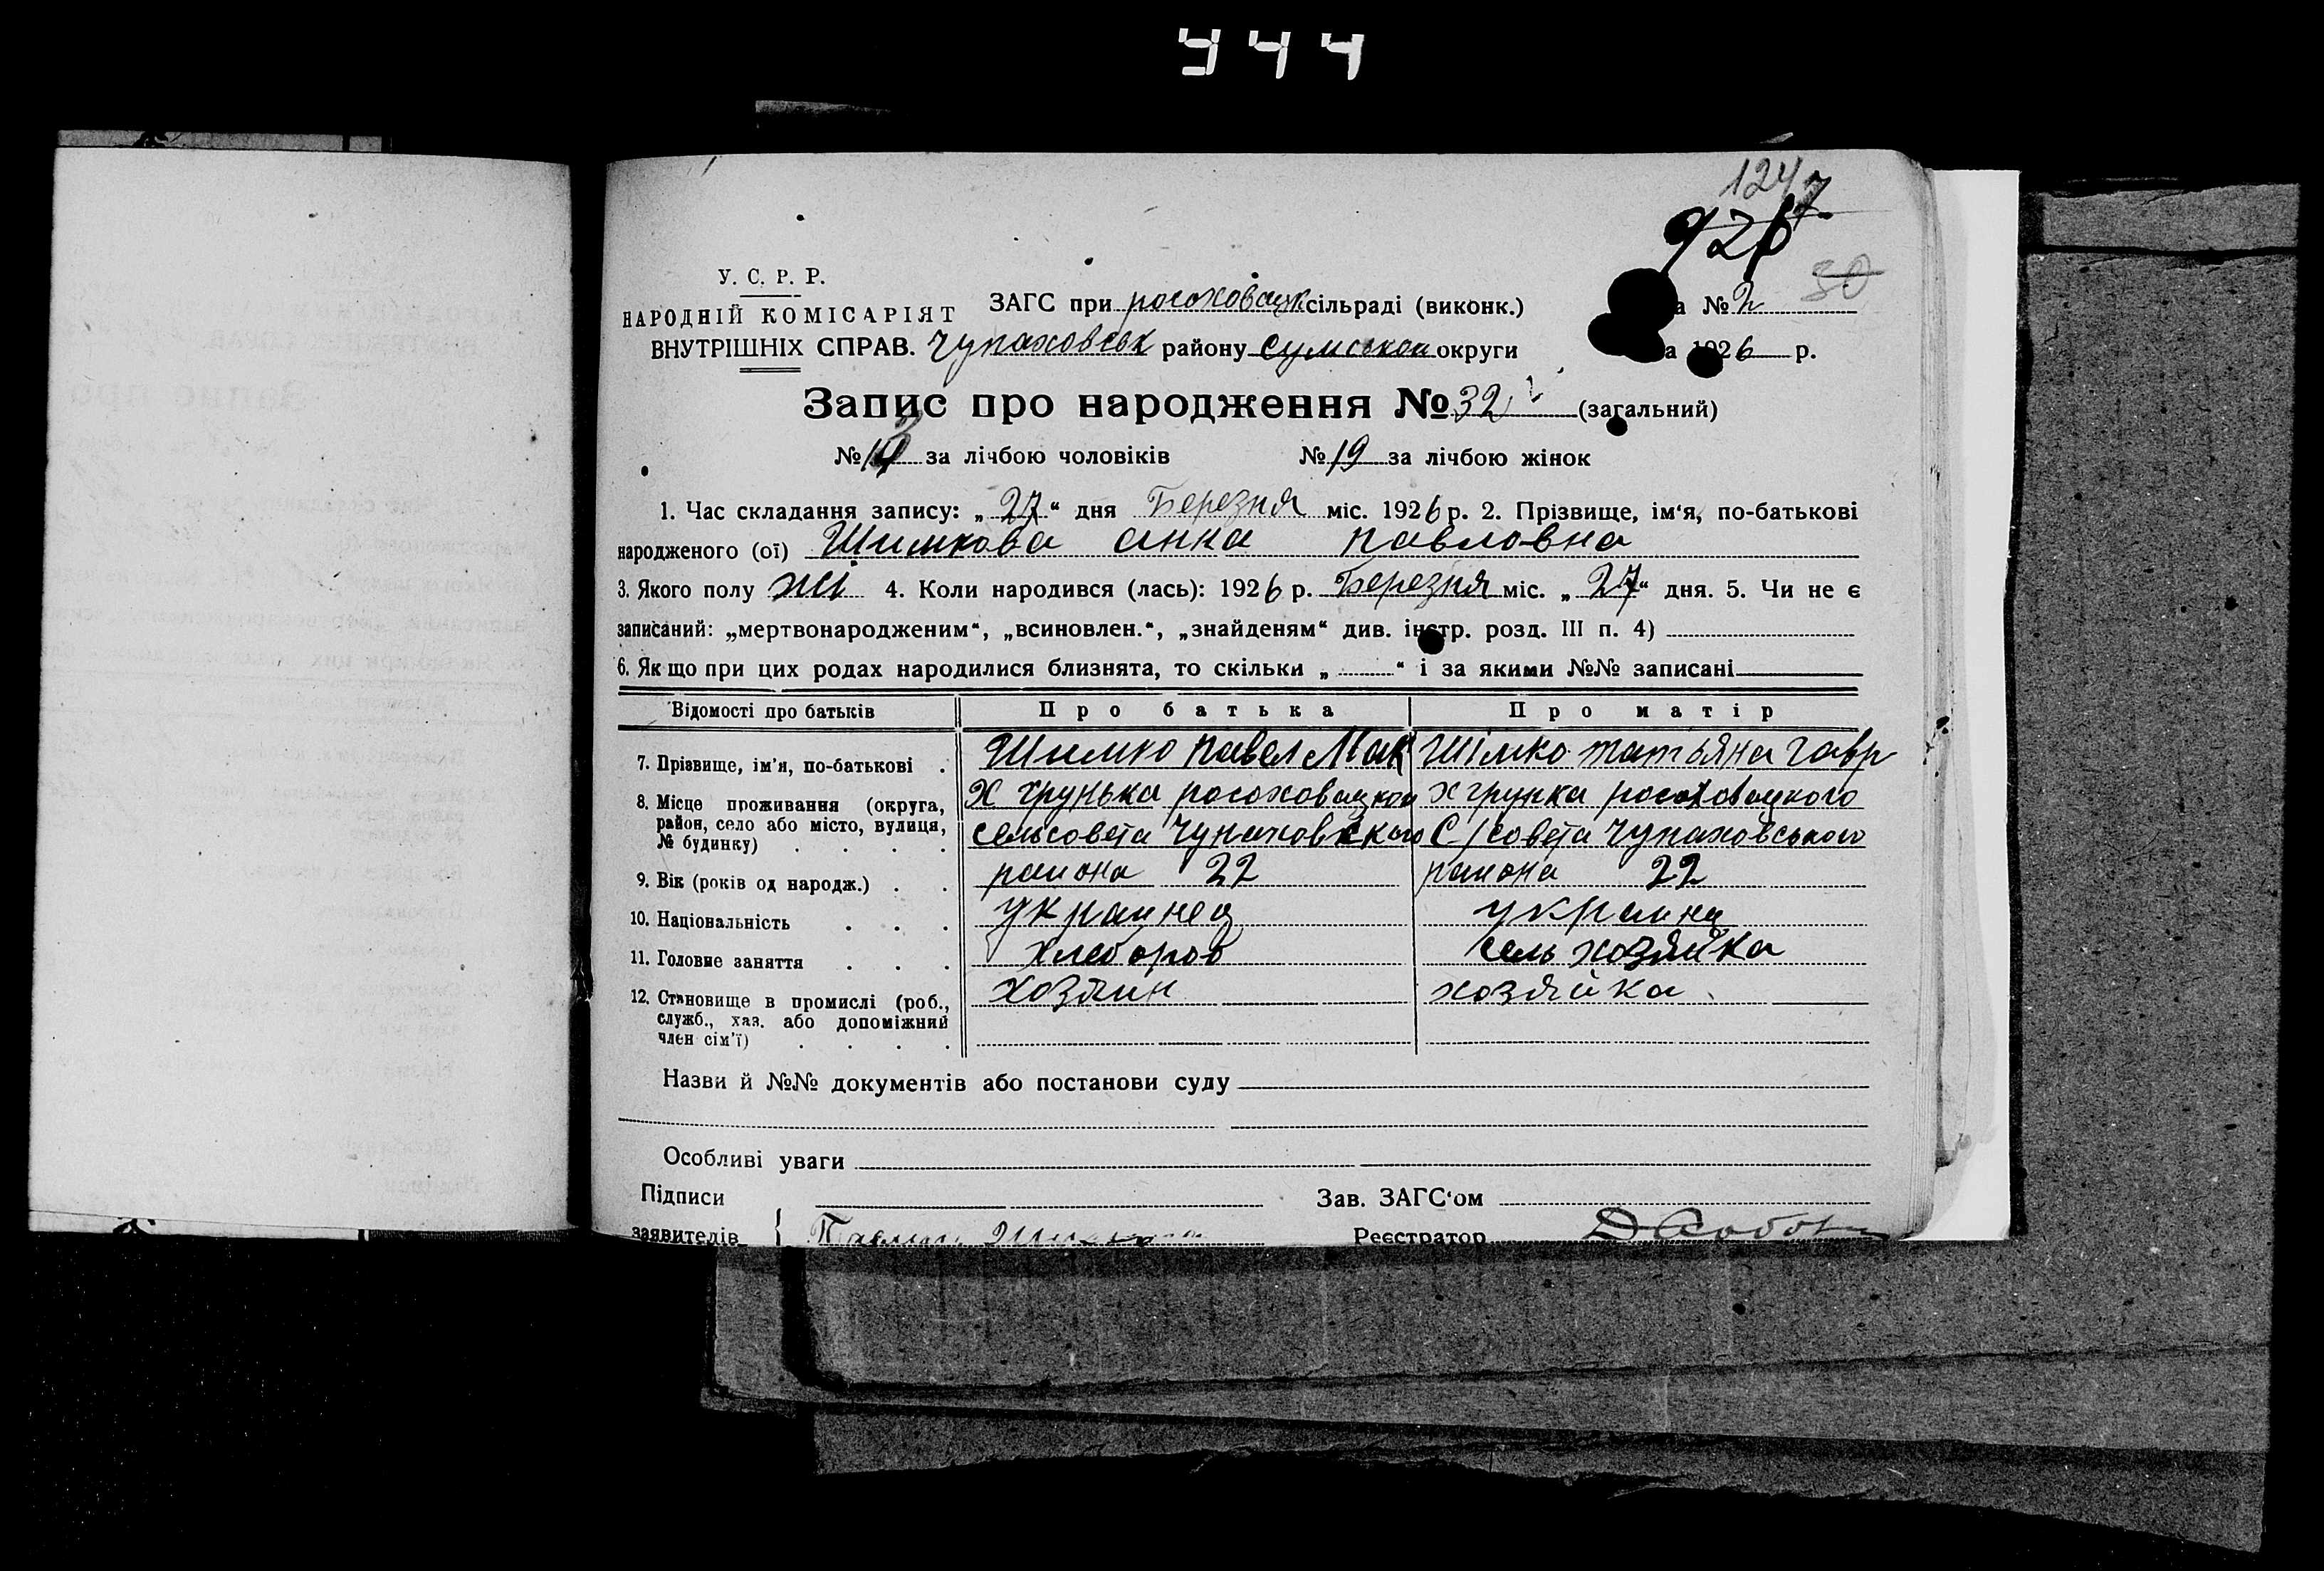 944
1247
926
30
У. С. Р. Р.
НАРОДНІЙ КОМІСАРІЯТ
ВНУТРІШНІХ СПРАВ.
ЗАГС при росоховацк сільраді (виконк.)
Чупаховськ району Сумської округи
а № 2
а 1926 р.
Запис про народження № 32 (загальний)
№ 13 за лічбою чоловіків № 19 за лічбою жінок
1. Час складання запису: „27“ дня Березня міс. 1926 р. 2. Прізвище, ім‘я, по-батькові
народженого (ої) Шимкова анна павловна
3. Якого полу жі 4. Коли народився (лась): 1926 р. Березня міс. „27“ дня. 5. Чи не є
записаний: „мертвонародженим“, „всиновлен.“, „знайденям“ див. інстр. розд. III п. 4)
6. Якщо при цих родах народилися близнята, то скільки „ “ і за якими №№ записані
Відомості про батьків Про батька Про матір
7. Прізвище, ім'я, по-батькові . Шимко павел Мак Шімко татьяна гавр
8. Місце проживання (округа, район, село або місто, вулиця, № будинку) . . . .
Х грунька росоховацкои
сельсовета Чупаховского
района
х грунка росоховацкого
С/совета Чупаховського
района
9. Вік (років од народж.) . . 22 22
10. Національність . . . украинец украинц
11. Головне заняття . . . хлебороб сель хозяйка
12. Становище в промислі (роб., служб., хаз. або допоміжний член сім'ї) . . . .
хозяин хозяйка
Назви й №№ документів або постанови суду
Особливі уваги
Підписи Зав. ЗАГС‘ом
заявителів { Реєстратор